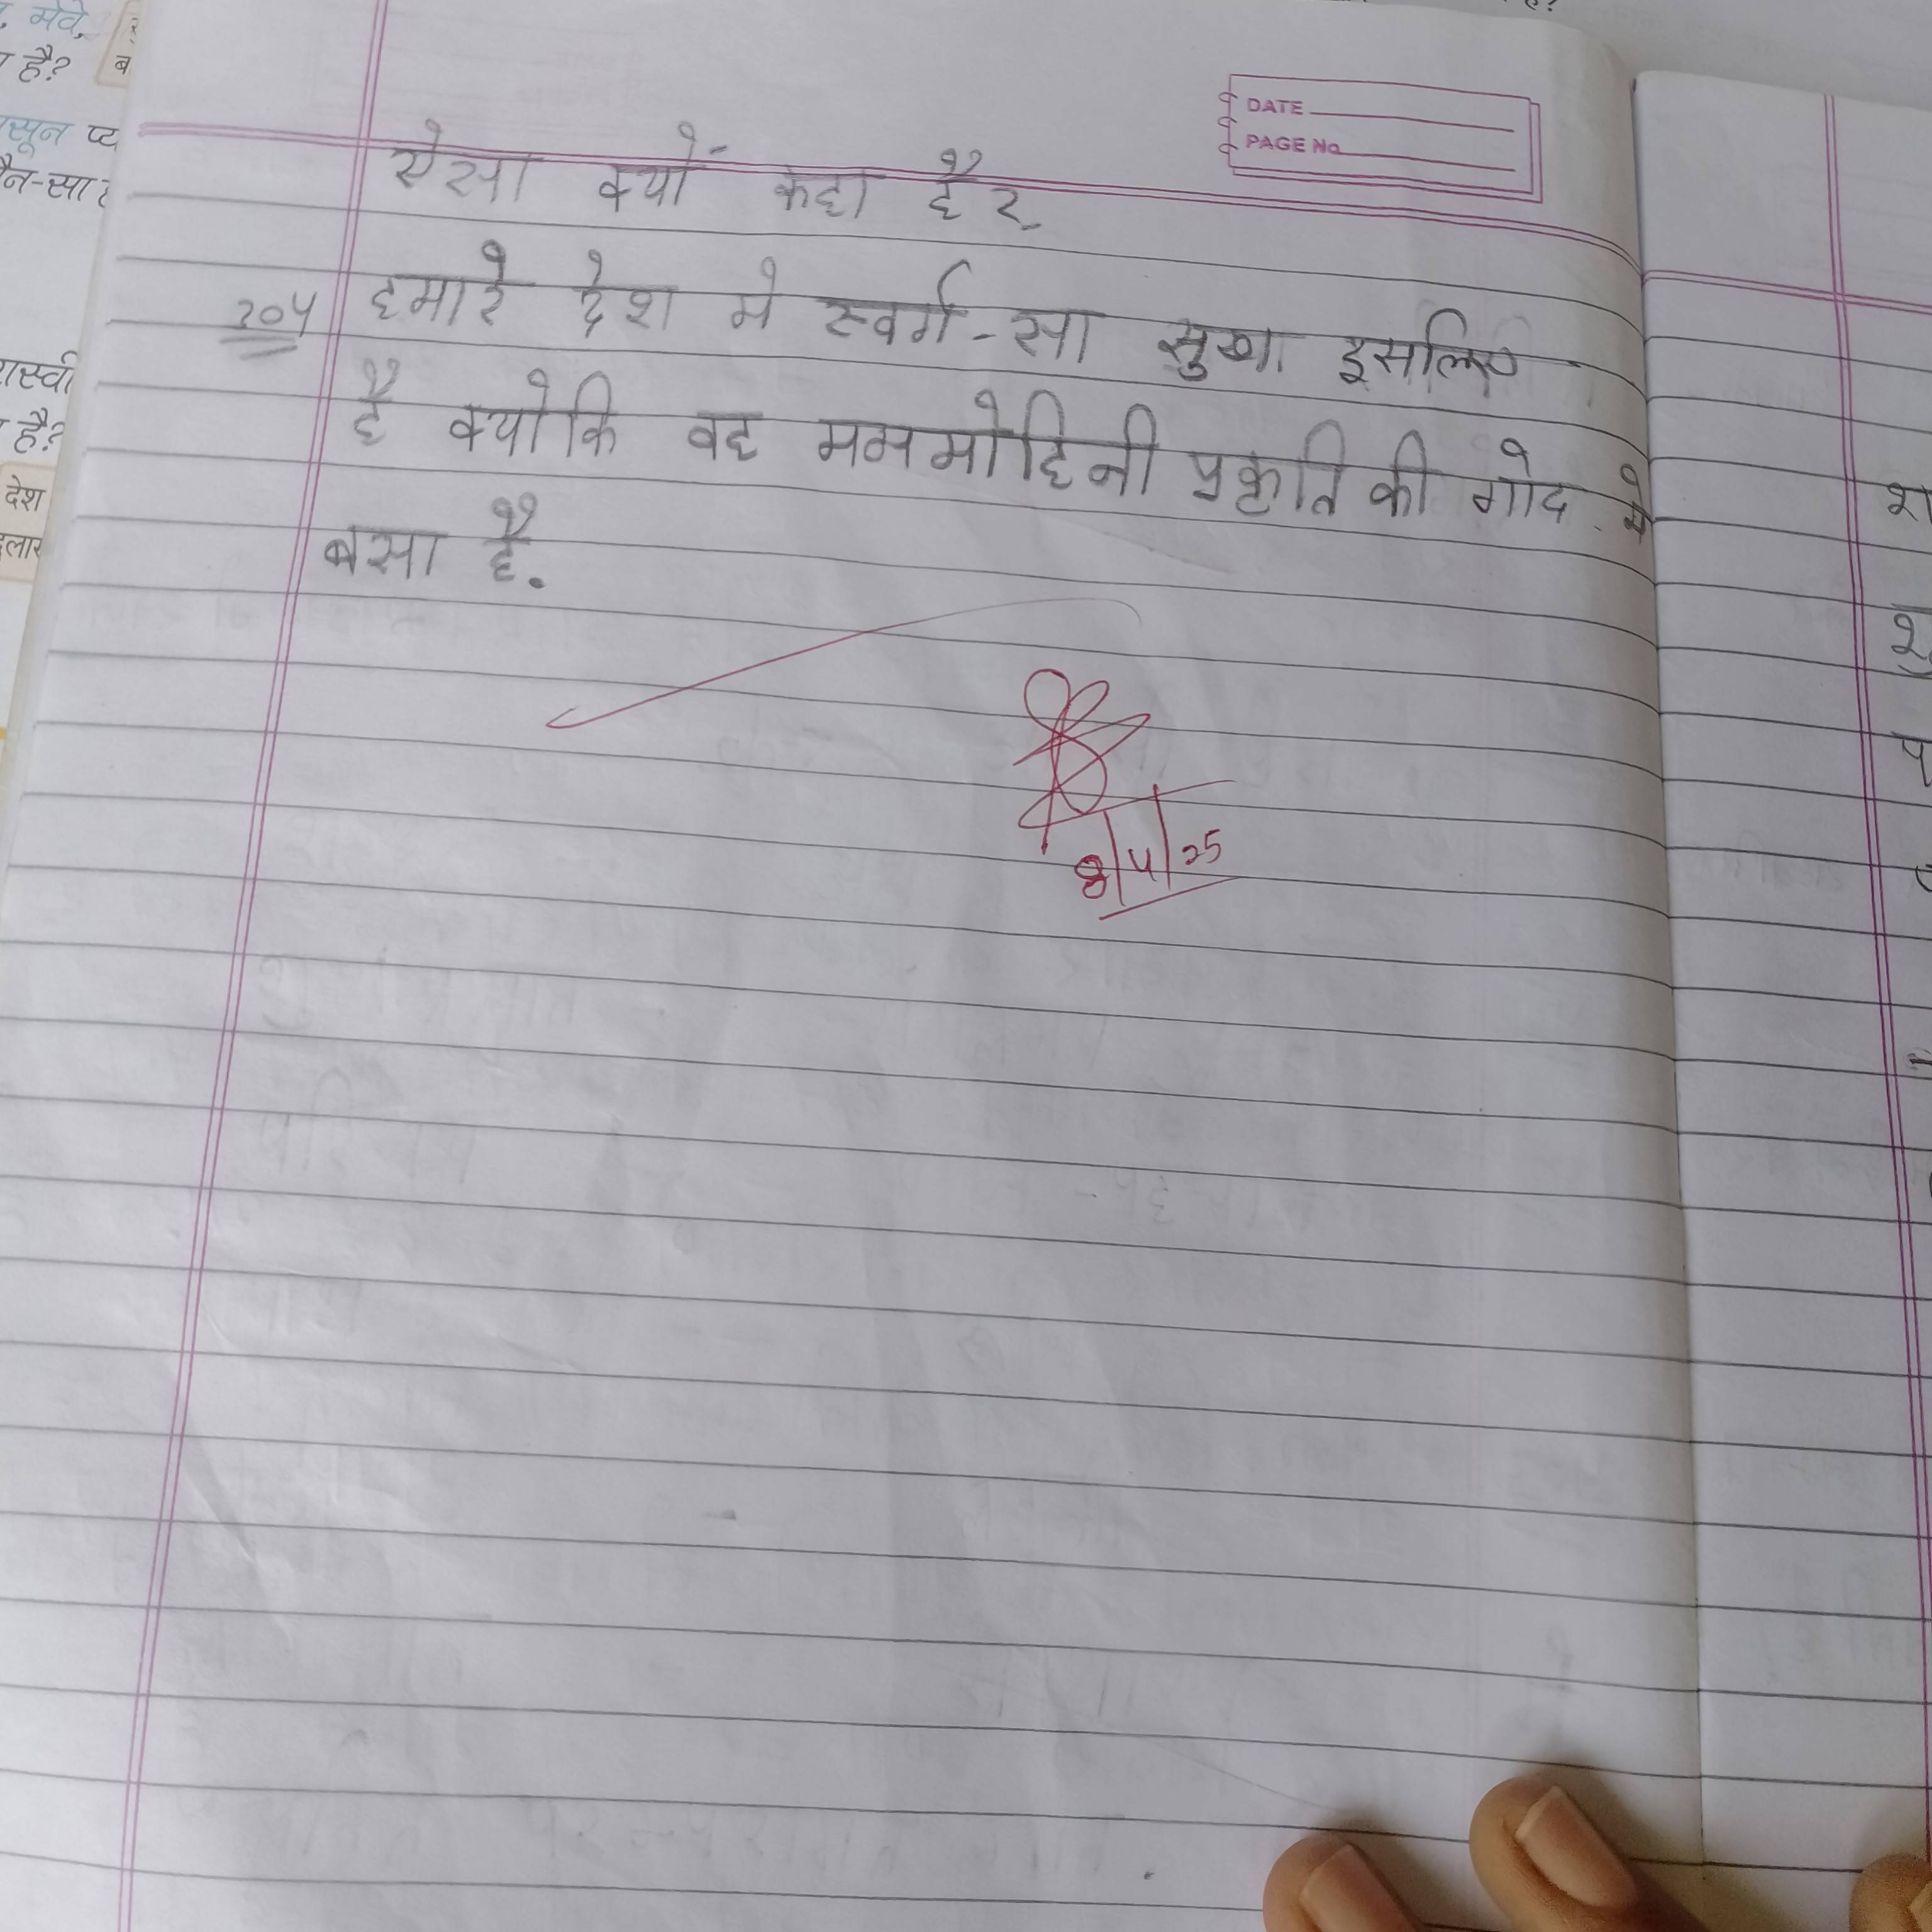 DATE
PAGE No
ऐसा क्यों कहा है?
उ०५ हमारे देश मे स्वर्ग-सा सुख इसलिए
है क्योकि वह मनमोहिनी प्रकृति की गोद मे
बसा है.
8/4/25
मेवे,
है?
है?
देश